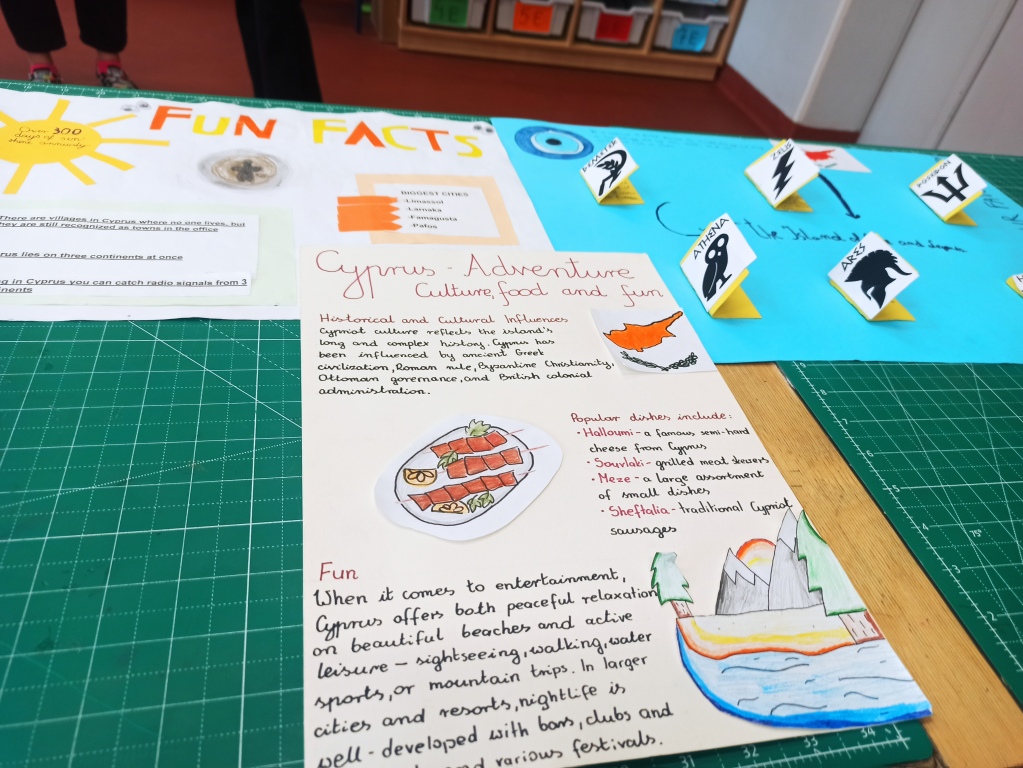 Over 300
days of sun
FUN FACTS
BIGGEST CITIES
-Limassol
-Larnaka
-Famagusta
-Pafos
There are villages in Cyprus where no one lives, but
they are still recognized as towns in the office
rus lies on three continents at once
g in Cyprus you can catch radio signals from 3
inents
DEMETER
ZEUS
POSEIDON
ATHENA
ARES
The Island of
and
Cyprus - Adventure
Culture, food and fun
Historical and Cultural Influences
Cypriot culture reflects the island's
long and complex history. Cyprus has
been influenced by ancient Greek
civilization, Roman rule, Byzantine Christianity,
Ottoman governance, and British colonial
administration.
Popular dishes include:
• Halloumi - a famous semi-hard
cheese from Cyprus
• Souvlaki - grilled meat skewers
• Meze - a large assortment
of small dishes
• Sheftalia - traditional Cypriot
sausages
Fun
When it comes to entertainment,
Cyprus offers both peaceful relaxation
on beautiful beaches and active
leisure – sightseeing, walking, water
sports, or mountain trips. In larger
cities and resorts, nightlife is
well-developed with bars, clubs and
and various festivals.
32
33
34